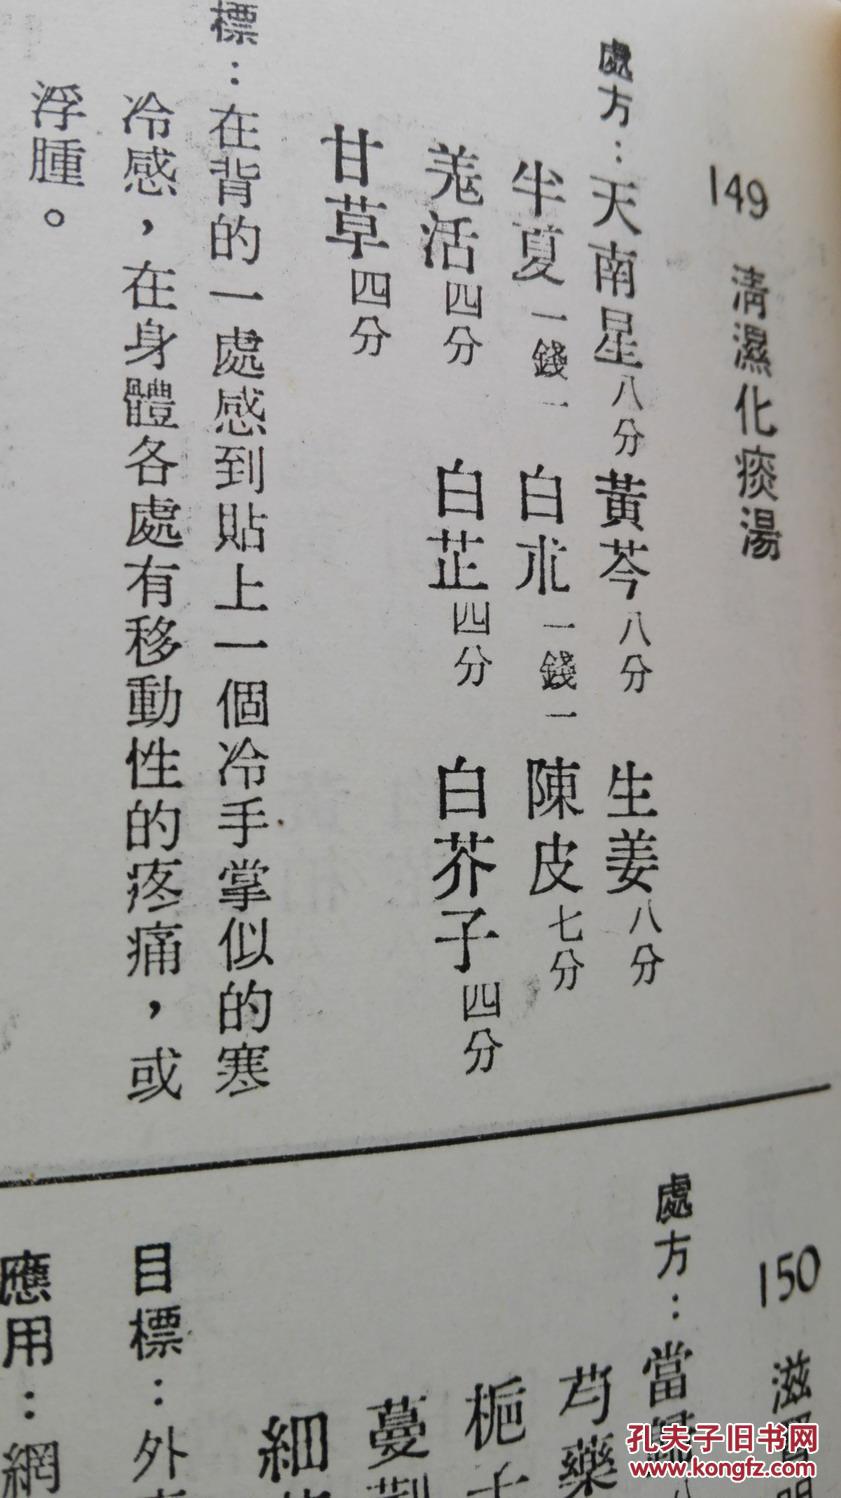 149 清濕化痰湯
處方：天南星八分 黃芩八分 生姜八分
半夏一錢一 白朮一錢一 陳皮七分
羗活四分 白芷四分 白芥子四分
甘草四分
標：在背的一處感到貼上一個冷手掌似的寒
冷感，在身體各處有移動性的疼痛，或
浮腫。
150 滋
處方：當
芍藥
梔
蔓荆
細
目標：外
應用：網
孔夫子旧书网
www.kongfz.com